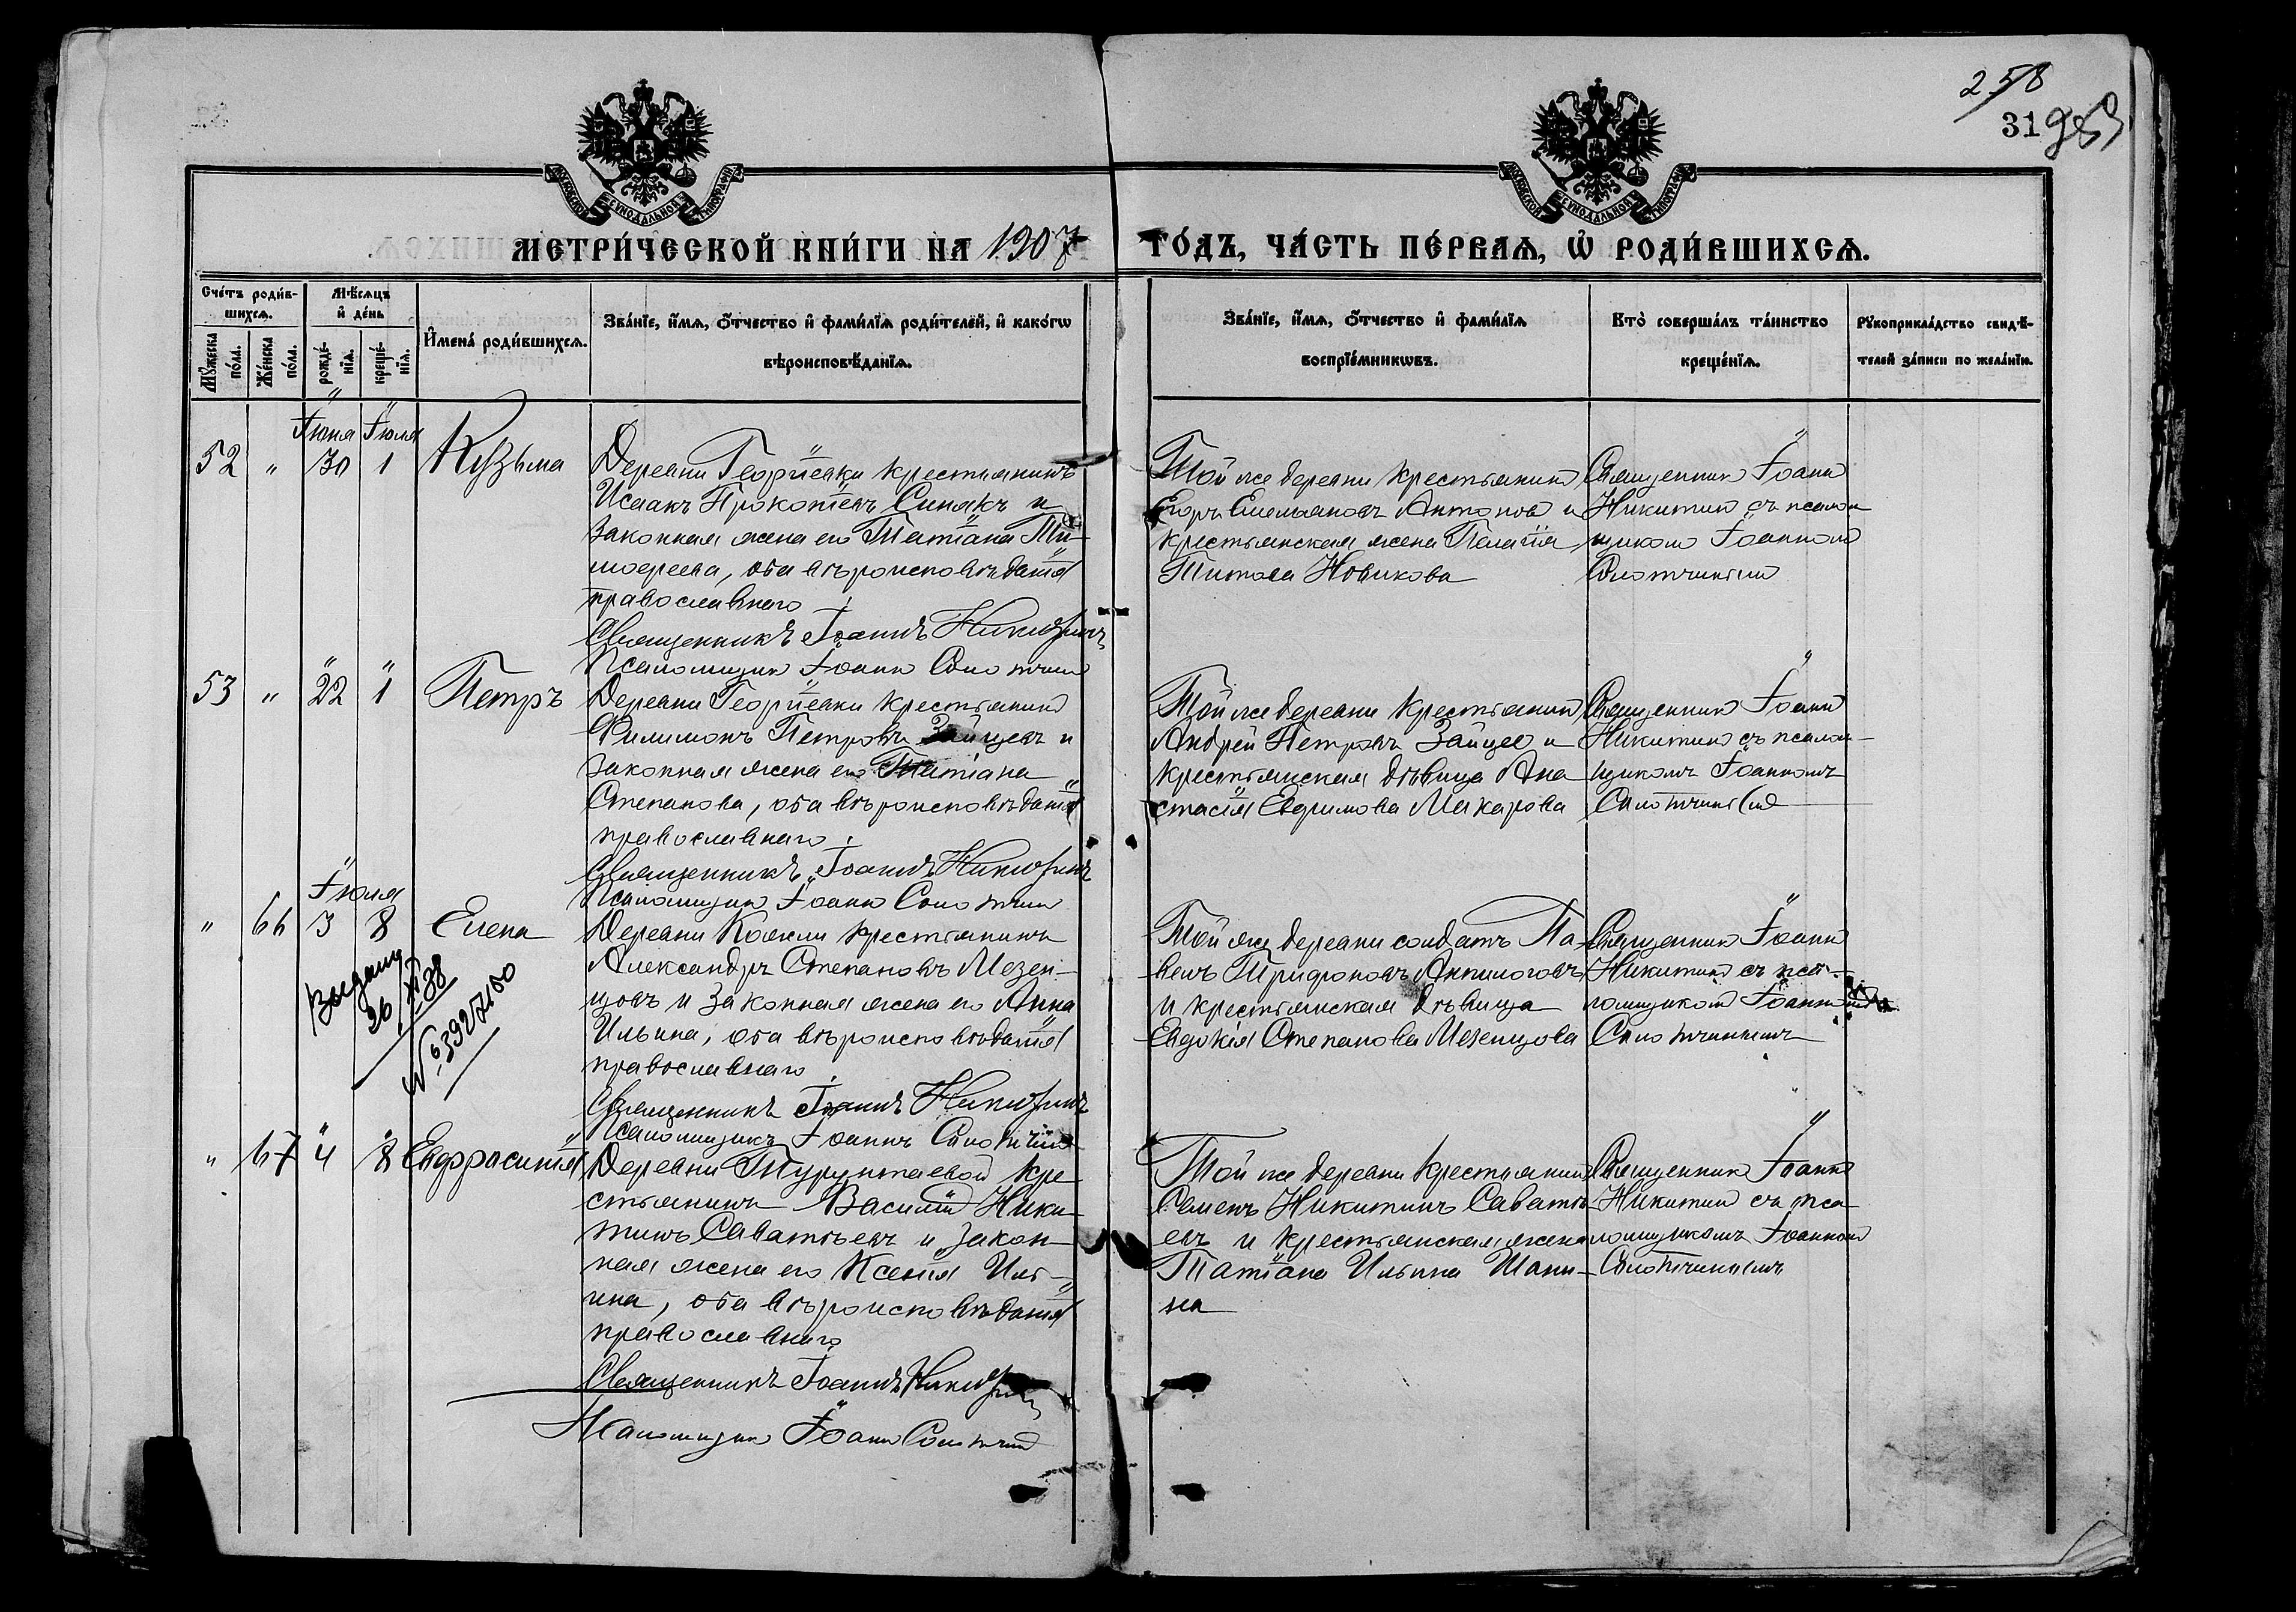 258
31
МЕТРИ́ЧЕСКОЙ КНИ́ГИ НА 1907 ГО́ДЪ, ЧА́СТЬ ПЕ́РВАѦ, Ѿ РОДИ́ВШИХСѦ.
Сче́тъ роди́вшихсѧ.
Мꙋ́жеска по́ла.
Же́нска по́ла.
Мѣ́сѧцъ и҆ де́нь
рожде́нїѧ.
креще́нїѧ.
И҆мена̀ роди́вшихсѧ.
Зва́нїе, и҆́мѧ, ѻ҆́тчество и҆ фами́лїѧ роди́телей, и҆ како́гѡ
вѣроисповѣ́данїѧ.
Зва́нїе, и҆́мѧ, ѻ҆́тчество и҆ фами́лїѧ
воспрїе́мникѡвъ.
Кто̀ соверша́лъ та́инство
креще́нїѧ.
Рꙋкоприкла́дство свидѣ́-
телей за́писи по жела́нїю.
Іюня Іюля
52 " 30 1 Кузьма
Деревни Георгіевки крестьянинъ
Исаакъ Прокопіевъ Синякъ и
законная жена его Татіана Ти-
моѳеева, оба вѣроисповѣданія
православнаго
Священникъ Іоаннъ Никитинъ
Псаломщикъ Іоаннъ
Той же деревни крестьянинъ
Егоръ Емельяновъ Антоновъ и
крестьянская жена Пелагія
Титова Новикова
Священникъ Іоаннъ
Никитинъ съ псалом
щикомъ Іоанномъ
53 " 22 1 Петръ
Деревни Георгіевки крестьянинъ
Филимонъ Петровъ Зайцевъ и
законная жена его Татіана
Степанова, оба вѣроисповѣданія
православнаго
Священникъ Іоаннъ Никитинъ
Псаломщикъ Іоаннъ
Той же деревни крестьянинъ
Андрей Петровъ Зайцевъ и
крестьянская дѣвица Ана
стасія Ефимова Макарова
Священникъ Іоаннъ
Никитинъ съ псалом-
щикомъ Іоанномъ
Іюля
" 66 3 8 Елена
Выдано
26/XI 38
№ 3927100
Деревни крестьянинъ
Александръ Степановъ Мезен-
цовъ и законная жена его Анна
Ильина, оба вѣроисповѣданія
православнаго
Священникъ Іоаннъ Никитинъ
Псаломщикъ Іоаннъ
Той же деревни солдатъ Па-
велъ Трифоновъ Анпилоговъ
и крестьянская дѣвица
Евдокія Степанова Мезенцова
Священникъ Іоаннъ
Никитинъ съ пса-
ломщикомъ Іоанномъ
" 67 4 8 Евфросинія
Деревни Турунтаевой кре
стьянинъ Василій Ники-
тинъ Саватѣевъ и закон-
ная жена его Ксенія Иль-
ина, оба вѣроисповѣданія
православнаго
Священникъ Іоаннъ Никитинъ
Псаломщикъ Іоаннъ
Той же деревни крестьянинъ
Семенъ Никитинъ Саватѣ-
евъ и крестьянская жена
Татіана Ильина Шани-
на
Священникъ Іоаннъ
Никитинъ съ пса-
ломщикомъ Іоанномъ